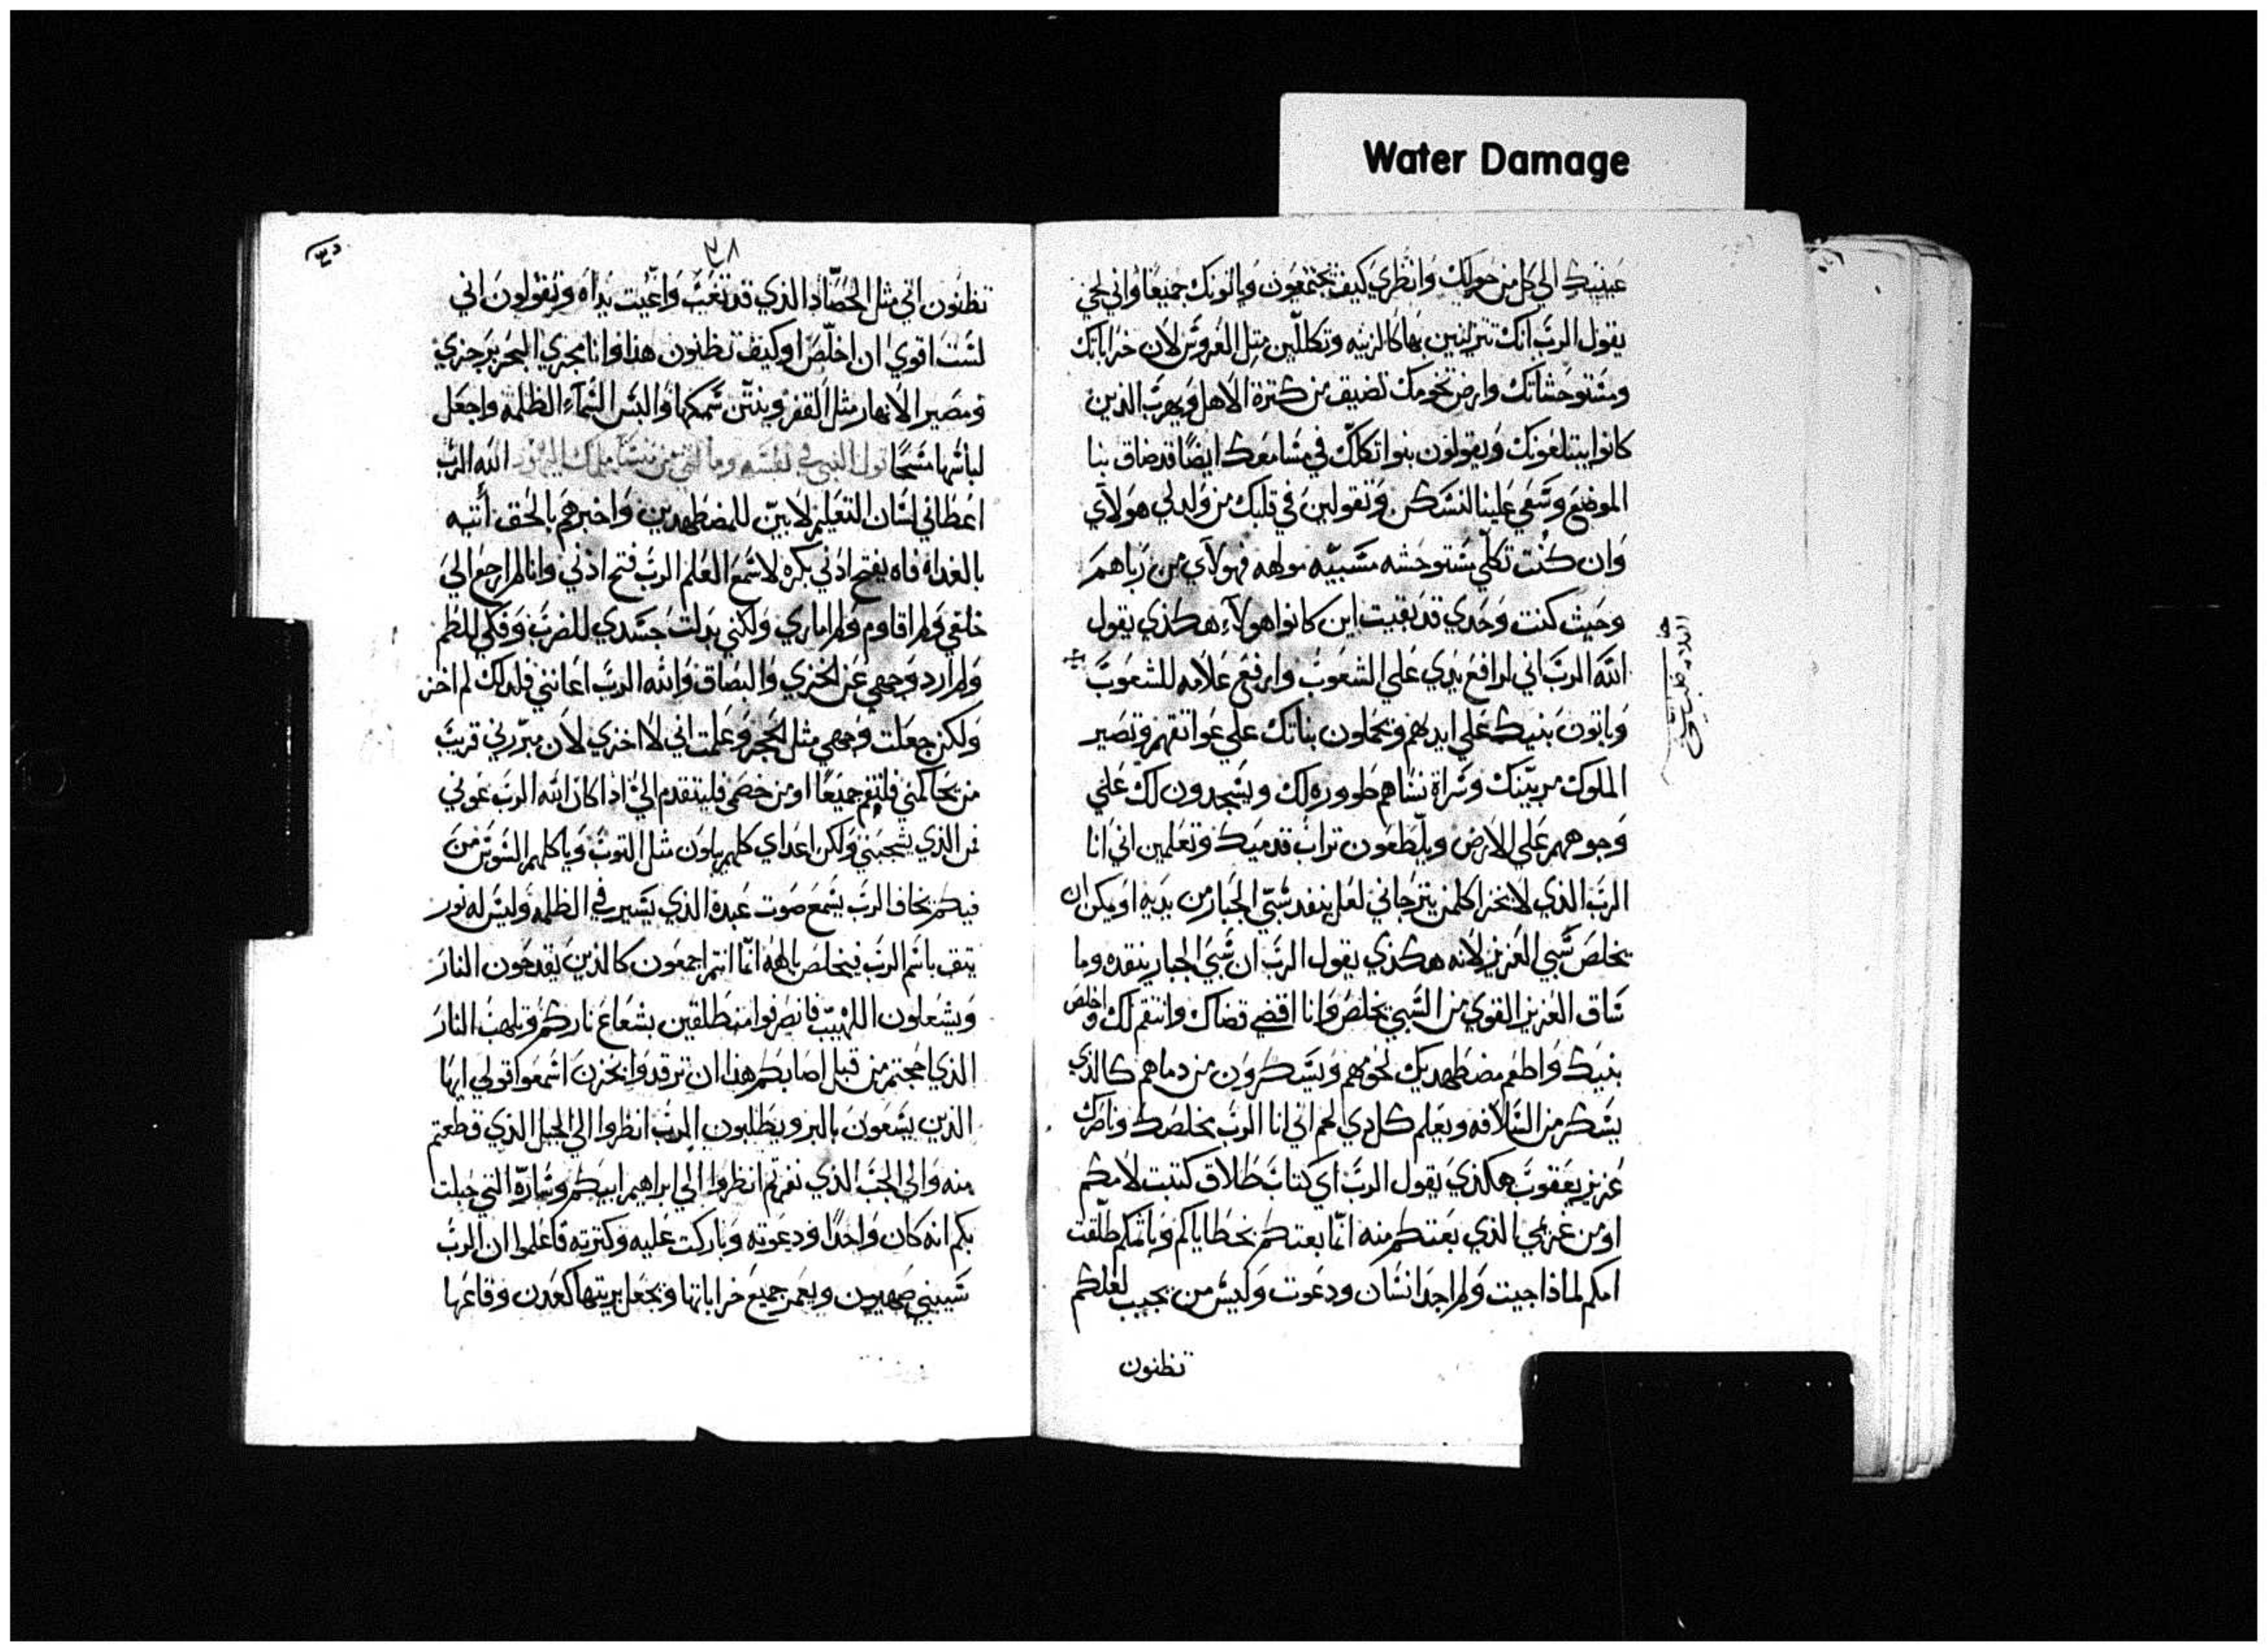 Water Damage
عينيك الي كل من حولك وانظري كيف يجتمعون وياتونك جميعًا واني لحي
يقول الرب انك تتزينين بها كالزينه وتكللين مثل العروس لان خراباتك
ومستوحشاتك وارض تخومك تضيق من كترة الاهل ويهرب الذين
كانوا يبتلعونك ويقولون بنوا تكلك في مسامعك ايضًا قد ضاق بنا
الموضع وسعي علينا لنسكن وتقولين في قلبك من ولد لي هولآي
وان كنت تكلي مستوحشه مسبيّه مولهه فهولآي من رباهم
وحيث كنت وحدي قد بقيت اين كانوا هولآء هكذي يقول
الله الرب اني ارافع يدي علي الشعوب وارفع علامه للشعوب
وياتون ببنيك علي ايديهم ويحملون بناتك علي عواتقهم وتصير
الملوك مربيّنك وسراة نساهم طووره لك ويسجدون لك علي
وجوههم علي الارض ويلطعون تراب قدميك وتعلمين اني انا
الرب الذي لا يخزا كلمن يترجاني لعل ينفد سبي الجبار من يديه او يمكن ان
يخلص سبي العزيز لانه هكذي يقول الرب ان سبي الجبار ينقده وما
ساق العزيز القوي من السبي يخلص وانا اقضي قضاك وانتقم لك واخلص
بنيك واطعم مضطهديك لحومهم ويسكرون من دماهم كالذي
يسكر من السلافه ويعلم كل دي لحم اني انا الرب مخلصك وناصرك
عزيز يعقوب هكذي يقول الرب اي كتاب طلاق كتبت لامكم
او من غريمي الذي بعتكم منه انما بعتكم بخطاياكم وباتمكم طلقت
امكم لماذا جيت ولم اجد انسان ودعوت وليس من يجيب لعلكم
تظنون
٣٨
تظنون اني مثل الحصّاد الذي قد تعب واعيت يداه وتقولون اني
لست اقوي ان اخلص او كيف تظنون هذا وانا مجري البحر بزجري
ومصير الانهار مثل القفر وينتن سمكها والبس السماء الظلمه واجعل
لباسها مسحًا قول النبي في نفسه وما لقي من منسا ملك اليهود الله الرب
اعطاني لسان التعليم لابيّن للمضطهدين واخبرهم بالحق أنتبه
بالغداه فاه يفتح اذني بكره لاسمع العلم الرب فتح اذني وانا لم ارجع الي
خلفي ولم اقاوم ولم اماري ولكني بدلت جسدي للضرب وفكي للطم
ولم ارد وجهي عن الخزي والبصاق والله الرب اعانني فلدلك لم اخز
ولكن جعلت وجهي مثل الحجر وعلمت اني لا اخزي لان مبرّرني قريب
من يحاكمني فلنقم جميعًا او من خصمي فليتقدم الي اذا كان الله الرب عوني
فمن الذي يشجبني ولكن اعداي كلهم يبلون مثل التوب وياكلهم السوس من
فيكم يخاف الرب يسمع صوت عبده الذي يسير في الظلمه وليس له نور
يتق باسم الرب فيخلص بالهه انما انتم اجمعون كالذين يقدحون النار
ويشعلون اللهيب فانصرفوا منطلقين بشعاع ناركم وتلهب النار
الذي اججتم من قبل اصابكم هذا ان ترقدوا بحزن اسمعوا قولي ايها
الذين يسعون بالبر ويطلبون الرب انظروا الي الجبل الذي قطعتم
منه والي الجب الذي نقرتم انظروا الي ابراهيم ابيكم وسارّه التي حبلت
بكم انه كان واحدًا ودعوته وباركت عليه وكترته فاعلموا ان الرب
سيبني صهيون ويعمر جميع خراباتها ويجعل بريتها كعدن وقاعها